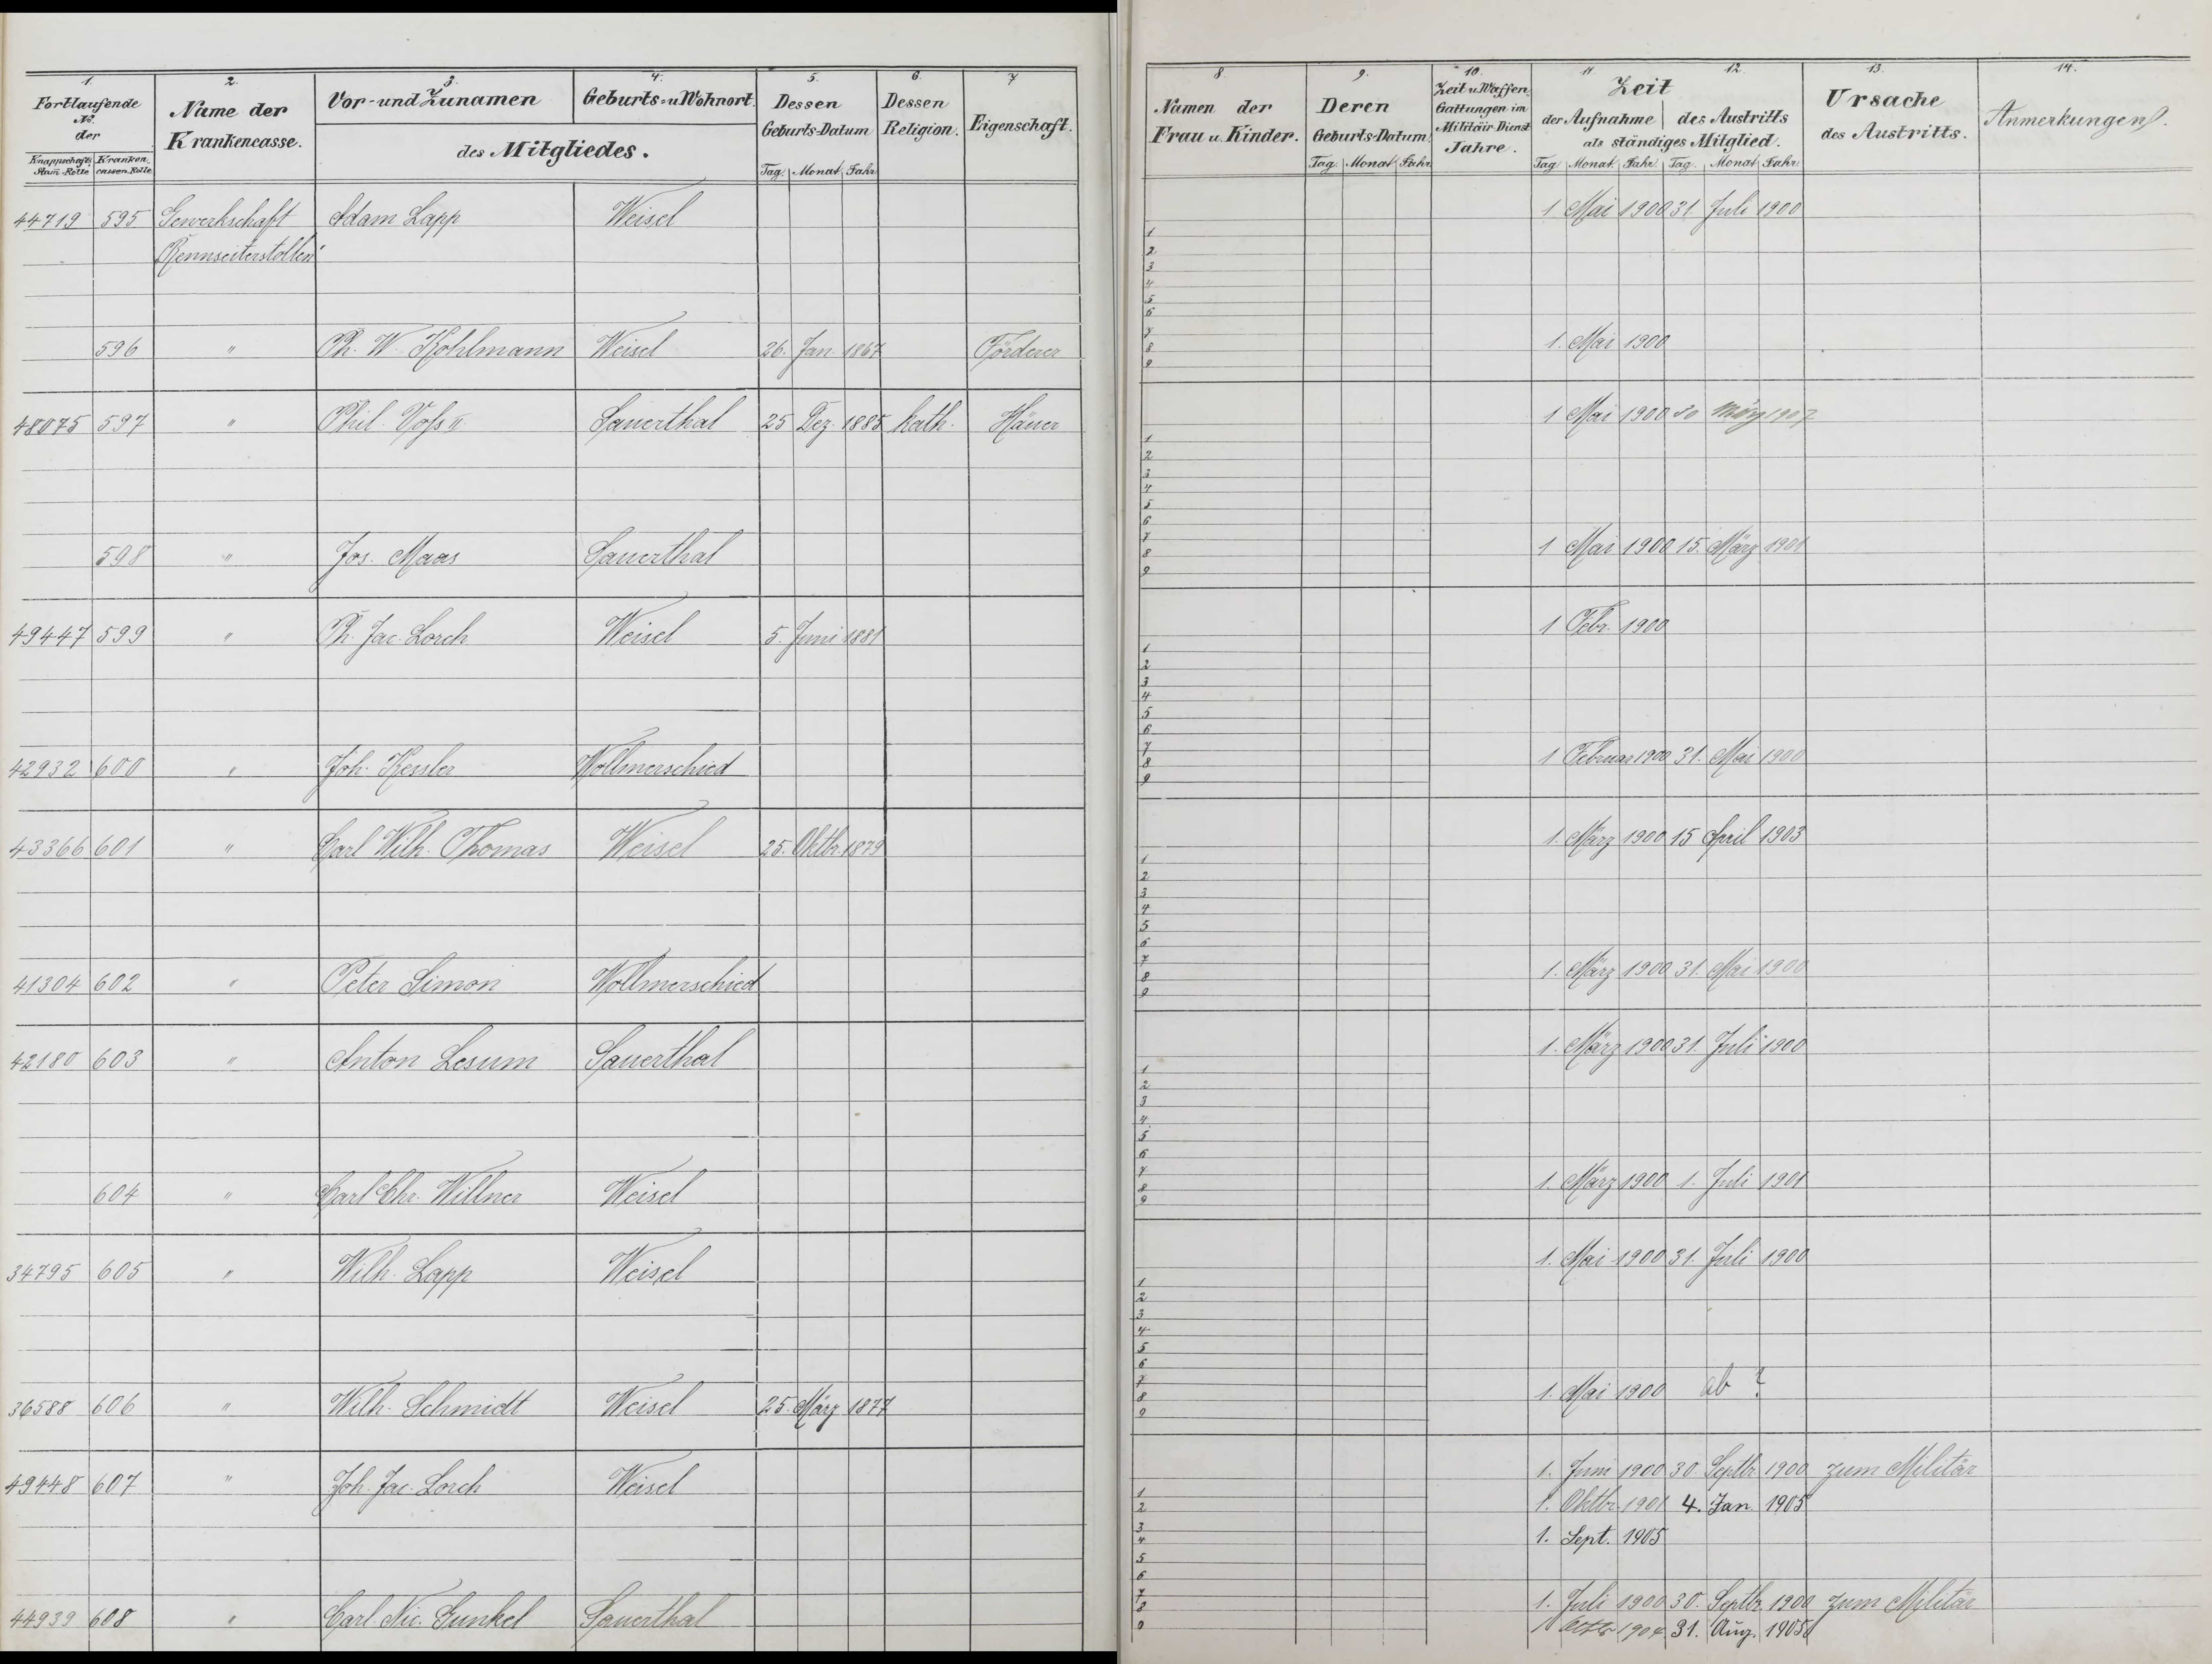 1. 2. 3. 4. 5. 6. 7
Fortlaufende No. der
Knappschafts Stam-Rolle Kranken cassen-Rolle
Name der Krankencasse.
Vor- und Zunamen Geburts- u Wohnort.
des Mitgliedes.
Dessen Geburts-Datum
Tag. Monat Jahr
Dessen Religion.
Eigenschaft.
44719 595 Gewerkschaft Adam Lapp Weisel
596 " Ph. W. Kohlmann Weisel 26. Jan 1867 Förderer
48075 597 " Phil. Voss II Sauerthal 25 Dez. 1885 kath. Häuer
598 " Jos. Maas Sauerthal
49447 599 " Ph. Jac. Lorch Weisel 5. Juni 1881
42932 600 " Joh. Kessler Wollmerschied
43366 601 " Carl Wilh. Thomas Weisel 25. Oktbr 1879
41304 602 " Peter Simon Wollmerschied
42180 603 " Anton Lesum Sauerthal
604 " Carl Chr. Willner Weisel
34795 605 " Wilh. Lapp Weisel
36588 606 " Wilh. Schmidt Weisel 25. März 1877
49448 607 " Joh. Jac. Lorch Weisel
44939 608 " Carl Nic. Gunkel Sauerthal
8. 9. 10. 11 12. 13. 14.
Namen der Frau u. Kinder.
Deren Geburts-Datum
Tag. Monat Jahr
Zeit u. Waffen Gattungen im Militair-Dienst Jahre.
Zeit
der Aufnahme des Austritts
als ständiges Mitglied.
Tag Monat Jahr Tag. Monat Jahr
Ursache des Austritts.
Anmerkungen.
1 Mai 1900 31 Juli 1900
1
2
3
4
5
6
7
8
9
1. Mai 1900
1 Mai 1900 30 März 1907
1
2
3
4
5
6
7
8
9
1 Mai 1900 15. März 1901
1 Febr. 1900
1
2
3
4
5
6
7
8
9
1 Februar 1900 31. Mai 1900
1. März 1900 15 April 1903
1
2
3
4
5
6
7
8
9
1. März 1900 31. Mai 1900
1. März 1900 31. Juli 1900
1
2
3
4
5
6
7
8
9
1. März 1900 1. Juli 1901
1. Mai 1900 31. Juli 1900
1
2
3
4
5
6
7
8
9
1. Mai 1900 ab ?
1. Juni 1900 30. Septbr. 1900 zum Militär
1. Oktbr. 1901 4. Jan 1905
1. Sept. 1905
1
2
3
4
5
6
7
8
9
1. Juli 1900 30. Septbr. 1900 zum Militär
1 Octbr 1904 31. Aug. 1905